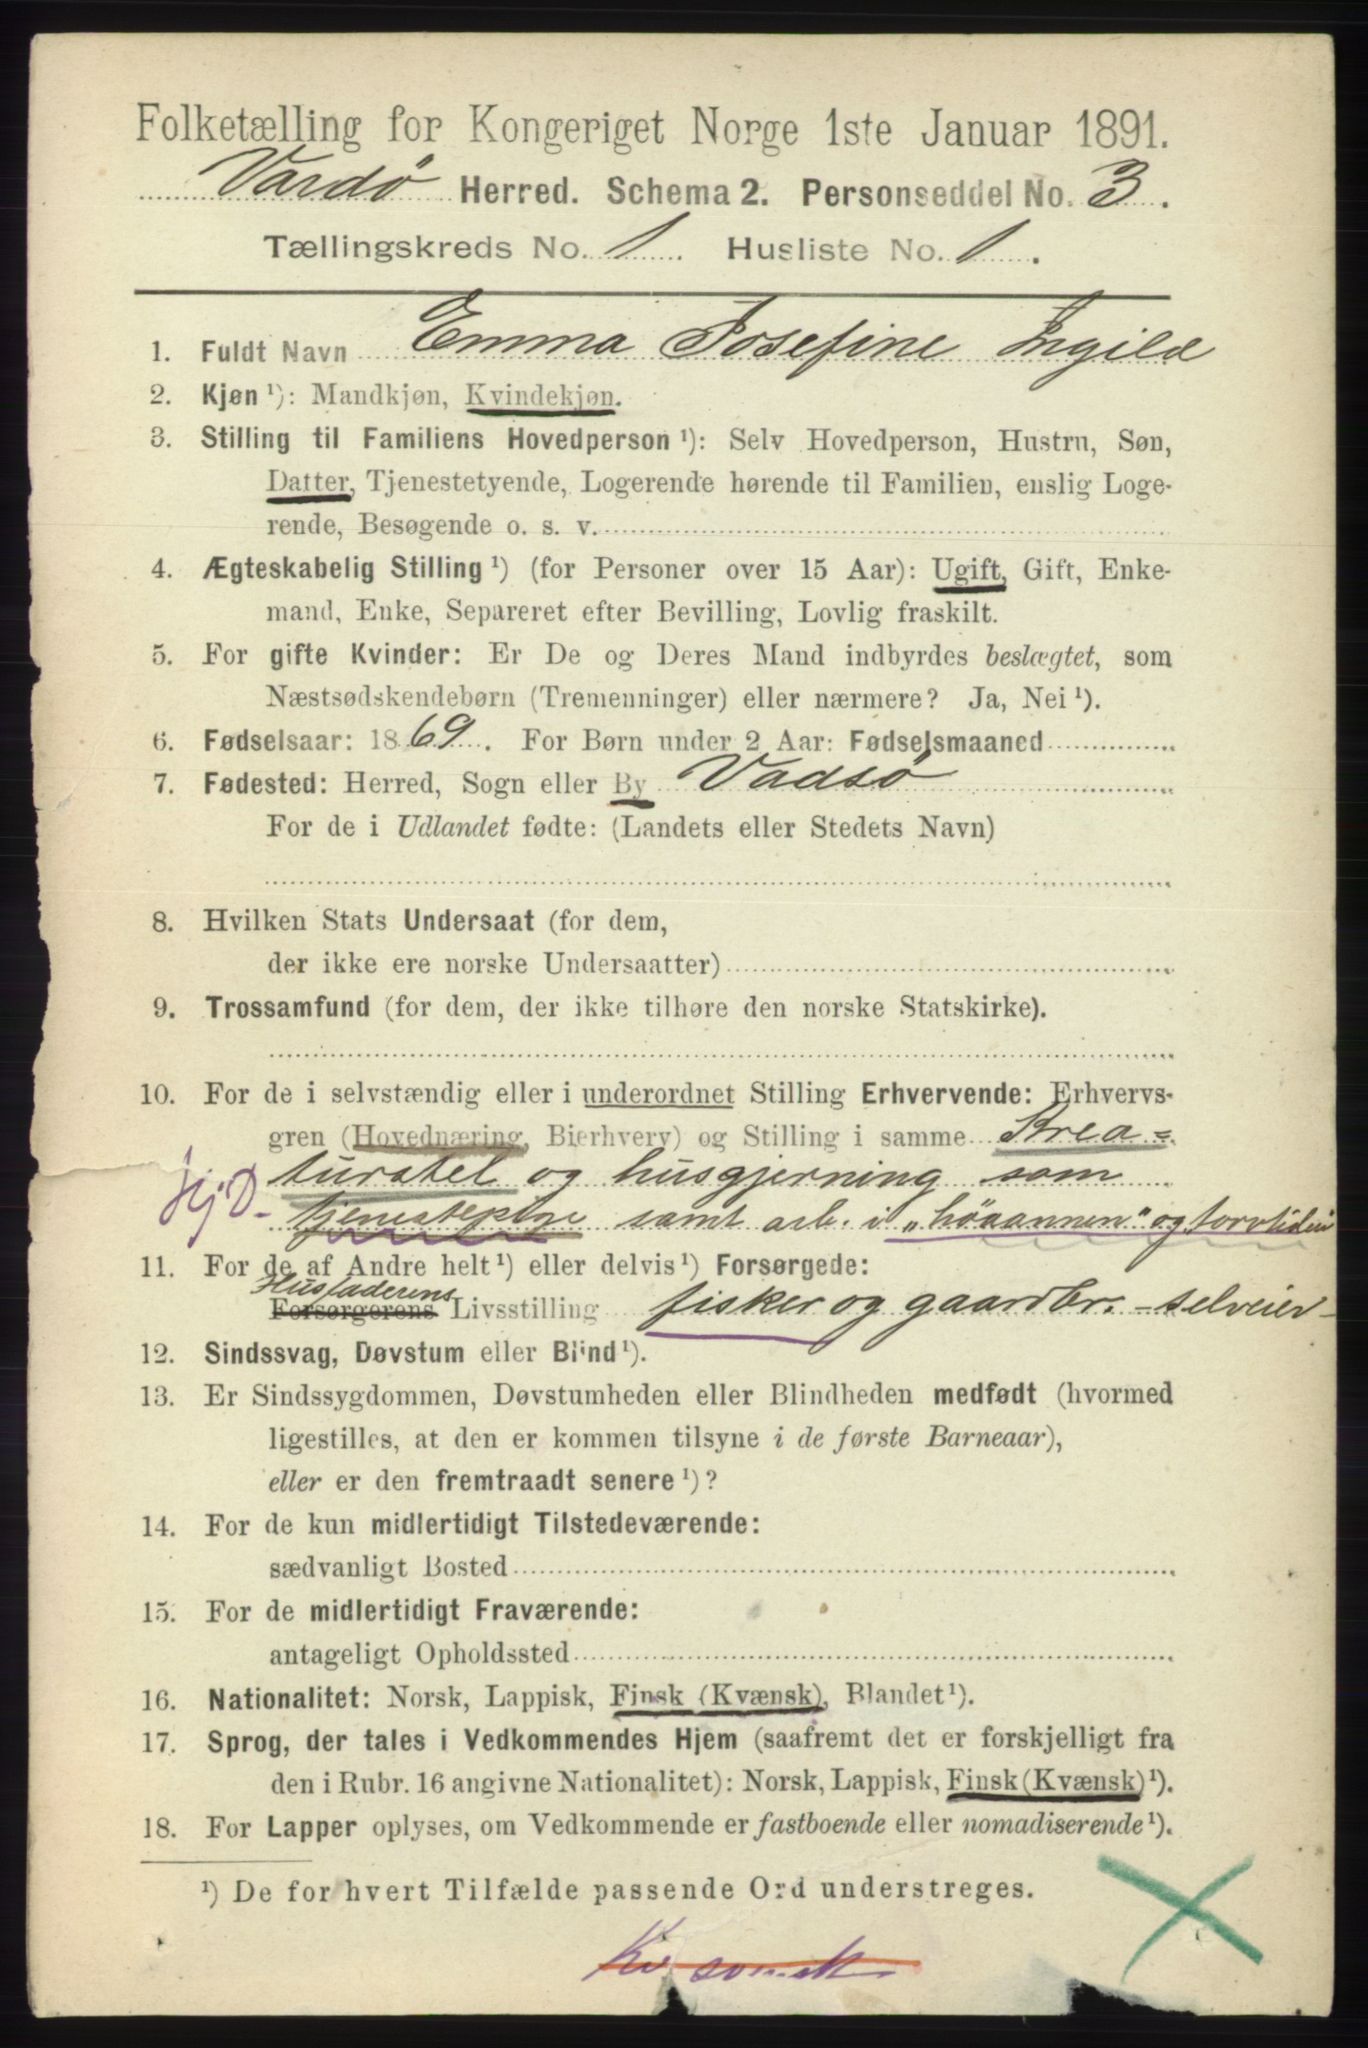 Folketælling for Kongeriget Norge 1ste Januar 1891.
Vardø Herred. Schema 2. Personseddel No. 3.
Tællingskreds No. 1. Husliste No. 1.
1. Fuldt Navn Emma Josefine Ingild
2. Kjøn ¹): Mandkjøn, Kvindekjøn.
3. Stilling til Familiens Hovedperson ¹): Selv Hovedperson, Hustru, Søn,
Datter, Tjenestetyende, Logerende hørende til Familien, enslig Loge-
rende, Besøgende o. s. v.
4. Ægteskabelig Stilling ¹) (for Personer over 15 Aar): Ugift, Gift, Enke-
mand, Enke, Separeret efter Bevilling, Lovlig fraskilt.
5. For gifte Kvinder: Er De og Deres Mand indbyrdes beslægtet, som
Næstsødskendebørn (Tremenninger) eller nærmere? Ja, Nei ¹).
6. Fødselsaar: 1869. For Børn under 2 Aar: Fødselsmaaned
7. Fødested: Herred, Sogn eller By Vadsö
For de i Udlandet fødte: (Landets eller Stedets Navn)
8. Hvilken Stats Undersaat (for dem,
der ikke ere norske Undersaatter)
9. Trossamfund (for dem, der ikke tilhøre den norske Statskirke).
10. For de i selvstændig eller i underordnet Stilling Erhvervende: Erhvervs-
gren (Hovednæring, Bierhverv) og Stilling i samme Krea=
turstel og husgjerning som
tjenestepige samt arb. i "höaannen" og torvtiden
11. For de af Andre helt ¹) eller delvis ¹) Forsørgede:
Husfaderens
Forsørgerens Livsstilling fisker og gaardbr. - selveier -
12. Sindssvag, Døvstum eller Blind ¹).
13. Er Sindssygdommen, Døvstumheden eller Blindheden medfødt (hvormed
ligestilles, at den er kommen tilsyne i de første Barneaar),
eller er den fremtraadt senere ¹)?
14. For de kun midlertidigt Tilstedeværende:
sædvanligt Bosted
15. For de midlertidigt Fraværende:
antageligt Opholdssted
16. Nationalitet: Norsk, Lappisk, Finsk (Kvænsk), Blandet ¹).
17. Sprog, der tales i Vedkommendes Hjem (saafremt det er forskjelligt fra
den i Rubr. 16 angivne Nationalitet): Norsk, Lappisk, Finsk (Kvænsk) ¹).
18. For Lapper oplyses, om Vedkommende er fastboende eller nomadiserende ¹).
¹) De for hvert Tilfælde passende Ord understreges.